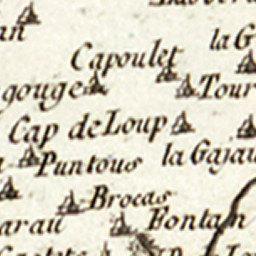 la G
Capoulet
gouge
Tour
Cap de Loup
Puntous
la Gajau
Brocas
arau
Fontan